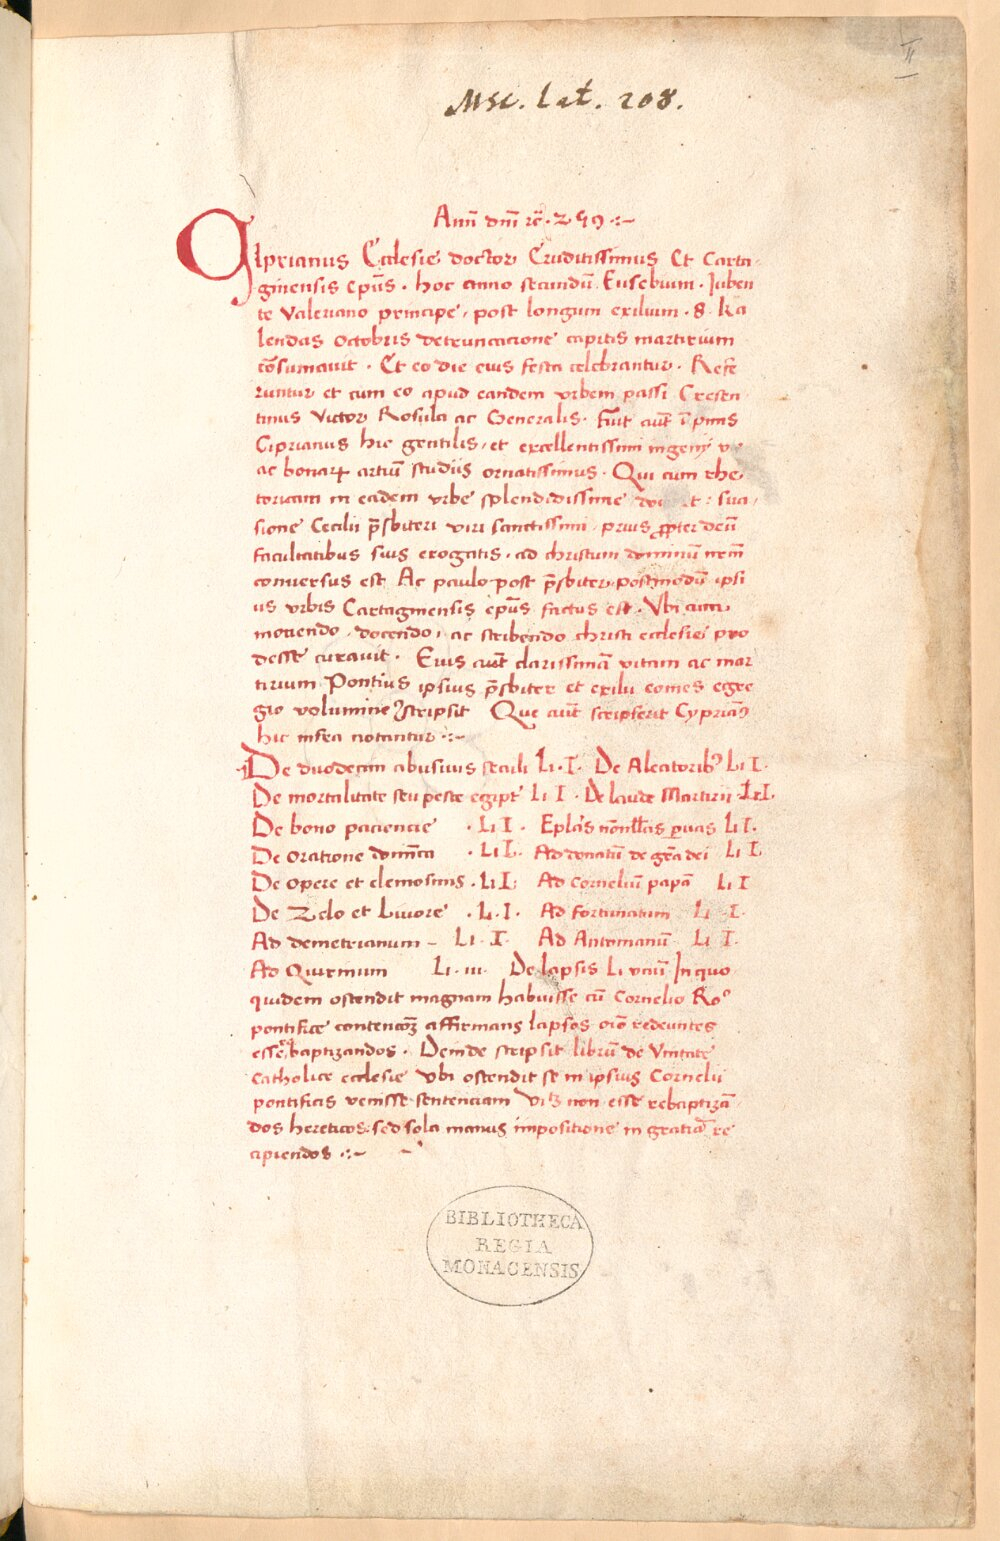 II
Msc. lat. 208.
Anñ dnĩ rč · 259 ·:~
Ciprianus Ecclesie doctor Eruditissimus Et Carta-
ginensis ep̃us · hoc anno secundũ Eusebium · Iuben
te Valeriano principe, post longum exilium · 8 · Ka
lendas Octobris detruncacione capitis martirium
cõsumauit · Et eo die eius festa celebrantur · Refe
runtur et cum eo apud eandem vrbem passi Cresen
tinus Victor Rosula ac Generalis · fuit aut̃ ĩpmis
Ciprianus hic gentilis, et excellentissimi ingenij v-
ac bonarꝝ artiũ studiis ornatissimus · Qui cum rhe
toricam in eadem vrbe splendidissime sua,
sione Cecilii p̃sbiteri viri sanctissimi, prius ꝓpter deũ
facultatibus suis erogatis, ad christum dominũ nr̃m
conuersus est Ac paulo post p̃sbiter, postmodũ ipsi
us vrbis Cartaginensis ep̃us factus est · Vbi cum
monendo, docendo, ac scribendo christi ecclesie pro
desse curauit · Eius aut̃ clarissimã vitam ac mar
tirium Pontius ipsius p̃sbiter et exilii comes egre
gio volumine 9scripsit Que aut̃ scripserit Cyprian9
hic infra notantur ·:~
De duodecim abusiuis seculi Li · I · De Aleatorib9 Li I ·
De mortalitate seu peste egipt Li I · De laude Martirii Li I ·
De bono paciencie · Li I · Ep̃las nõnllas paruas Li I ·
De oratione domĩca · Li I · Ad donatũ de gr̃a dei Li I
De opere et elemosinis · Li I · Ad Corneliũ papã Li I
De Zelo et Liuore · Li · I · Ad Fortunatum Li · I ·
Ad demetrianum - Li · I · Ad Antonianũ Li I ·
Ad Quirinum Li · iii · De lapsis Li vnũ In quo
quidem ostendit magnam habuisse cũ Cornelio Ro°
pontifice contencõꝫ affirmans lapsos oĩo redeuntes
esse rebaptizandos · Deinde scripsit librũ de Vnitate
Catholice ecclesie vbi ostendit se in ipsius Cornelii
pontificis venisse sentenciam vidꝫ non esse rebaptizã-
dos hereticos: sed sola manus impositione in gratiã re
cipiendos ·:~
BIBLIOTHECA
REGIA
MONACENSIS